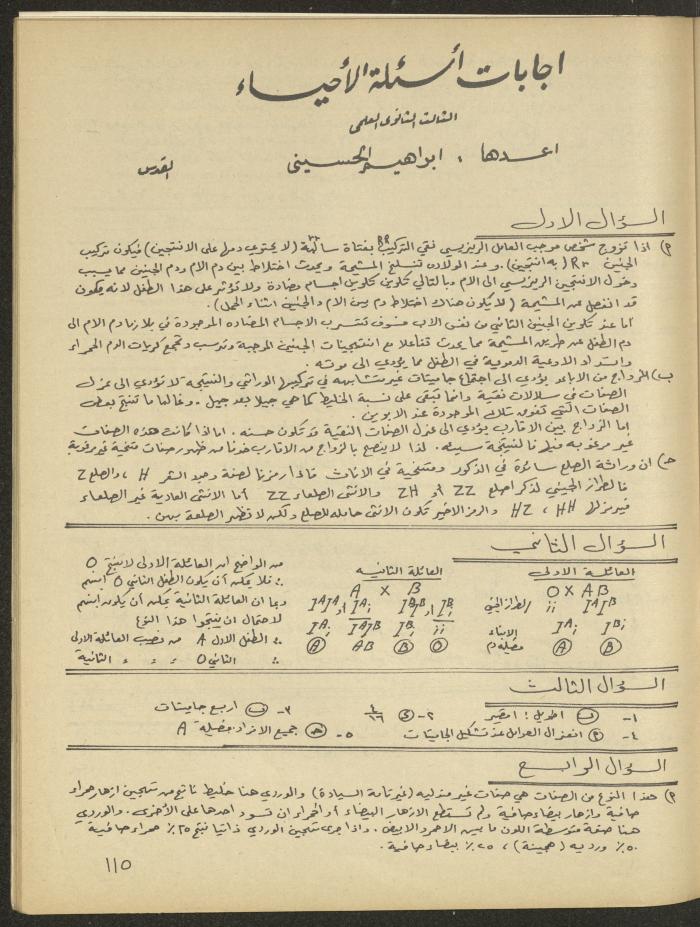 اجابات أسئلة الأحياء
الثالث الثانوي العلمي
اعدها : ابراهيم الحسيني
القدس
السؤال الاول
م) اذا تزوج شخص موجب العامل الريزيسي نقي التركيب RR بفتاة سالبة rr (لا يحتوي دمها على الانتجين) فيكون تركيب
الجنين Rr (به انتجين). وعند الولادة تنسلخ المشيمة ويحدث اختلاط بين دم الام ودم الجنين مما يسبب
دخول الانتجين الريزيسي الى الام وبالتالي تكوين اجسام مضادة ولا تؤثر على هذا الطفل لانه يكون
قد انفصل عن المشيمة (لا يكون هناك اختلاط دم بين الام والجنين اثناء الحمل).
أما عند تكوين الجنين الثاني من نفس الاب فسوف تتسرب الاجسام المضاده الموجودة في بلازما دم الام الى
دم الطفل عن طريق المشيمة مما يحدث تفاعلا مع انتجينات الجنين الموجبة وترسب وتجمع كريات الدم الحمراء
وانسداد الاوعية الدموية في الطفل مما يؤدي الى موته.
ب) الزواج من الاباعد يؤدي الى اجتماع جاميتات غير متشابهه في تركيبها الوراثي والنتيجه لا تؤدي الى عزل
الصفات في سلالات نقية وانما تبقى على نسبة الخليط كما هي جيلا بعد جيل. وغالبا ما تنتج بعض
الصفات التي تفوق تلك الموجودة عند الابوين.
إما الزواج بين الاقارب يؤدي الى عزل الصفات النقية قد تكون حسنه. اما اذا كانت هذه الصفات
غير مرغوبه فيها فالنتيجة سيئه. لذا لا ينصح بالزواج من الاقارب خوفا من ظهور صفات متنحية غير مرغوبة
حـ) ان وراثة الصلع سائدة في الذكور ومتنحية في الاناث فاذا رمزنا لصفة وجود الشعر H ، والصلع Z
فالطراز الجيني لذكر اصلع ZZ أو ZH والانثى الصلعاء ZZ أما الانثى العادية غير الصلعاء
فيرمز لها HH ، HZ والرمز الاخير تكون الانثى حامله للصلع ولكن لا تظهر الصلعة بهن.
السؤال الثاني
العائلة الاولى
O X AB
الطراز الجيني ii IAIB
الابناء IAi IBi
فصيلة دم A B
العائلة الثانيه
A X B
IAIA أو IAi IBIB أو IBi
IAi IAIB IBi ii
A AB B O
من الواضح أن العائلة الاولى لا تنتج O
∴ فلا يمكن أن يكون الطفل الثاني O ابنهم
وبما ان العائلة الثانية يمكن أن يكون ابنهم
لاحتمال ان ينتجوا هذا النوع
∴ الطفل الاول A من نصيب العائلة الاولى
∴ الثاني O " " " الثانية
السؤال الثالث
١- ب اطويل : ا قصير ٢- ٤/١٦ ٣- ب اربع جاميتات
٤- م انعزال العوامل عند تشكيل الجاميتات ٥- جميع الافراد فصيلة A
السؤال الرابع
م) هذا النوع من الصفات هي صفات غير مندليه (غير تامة السيادة) والوردي هنا خليط ناتج من تهجين ازهار حمراء
صافية وازهار بيضاء صافية ولم تستطع الازهار البيضاء أو الحمراء ان تسود احدها على الأخرى. والوردي
هنا صفة متوسطة اللون ما بين الاحمر والابيض. واذا جرى تهجين الوردي ذاتيا نتج ٢٥٪ حمراء صافية
٥٠٪ ورديه (هجينة) ، ٢٥٪ بيضاء صافية.
١١٥